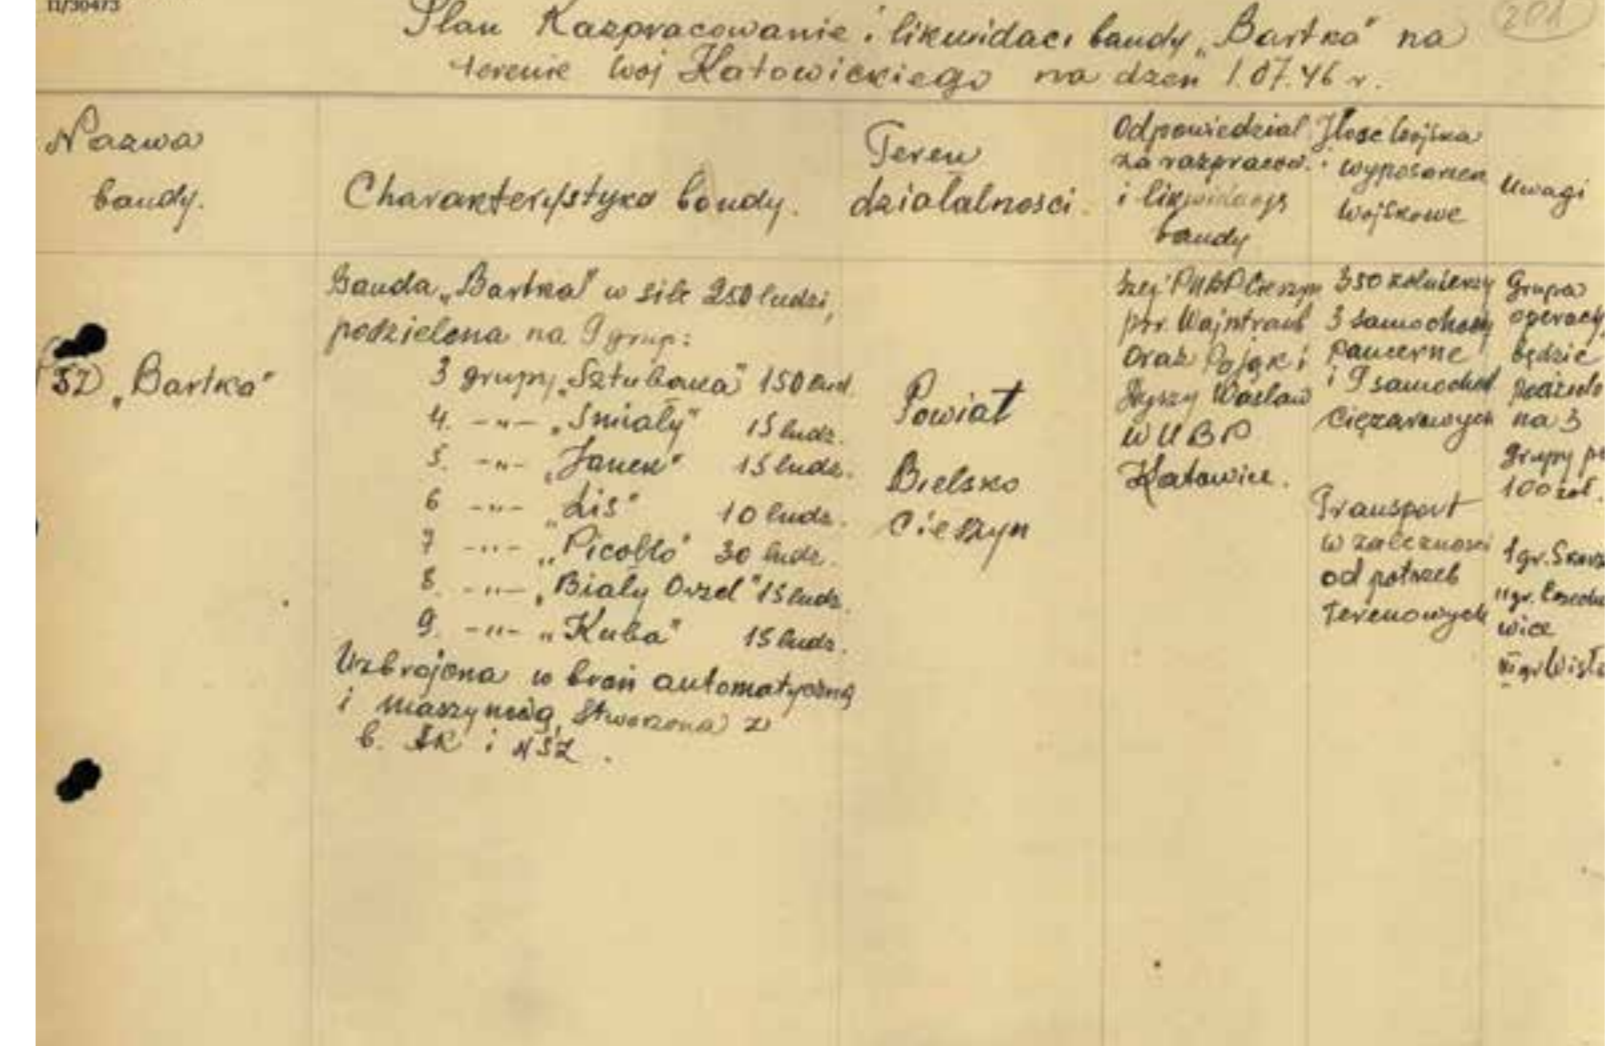 11/30473
201
Plan Razpracowanie i likwidaci bandy „Bartka" na
terenie woj Katowickiego na dzeń 1.07.46 r.
Nazwa
bandy.
Charakterystyka bandy.
Teren
działalnosci.
Odpowiedzial
za razpracow.
i likwidacje
bandy
Ilosc Wojska
wyposarzen
Wojskowe
Uwagi
"Bartka"
Banda „Bartka" w sile 250 ludzi,
podzielona na 9 grup:
3 grupy „Sztubaka" 150 lud.
4. -"- „Smiały" 15 ludz.
5. -"- „Janek" 15 ludz.
6 -"- „Lis" 10 ludz.
7 -"- „Picollo" 30 ludz.
8. -"- „Biały Orzel" 15 ludz.
9. -"- „Kuba" 15 ludz.
Uzbrojona w broń automatyczną
i maszynową, stworzona z
b. AK i NSZ.
Powiat
Bielsko
Cieszyn
Szef PUBP Cieszyn
por. Wajntraub
oraz Pająk i
Wacław
WUBP
Katowice.
350 zołnierzy
3 samochody
Pancerne
i 9 samochod
Cięzarowych
Transport
w zaleznosci
od potrzeb
Terenowych
Grupa
operacy
będzie
podzielo
na 3
grupy po
100 zoł.
1 gr.
II gr.
wice
III gr Wisła